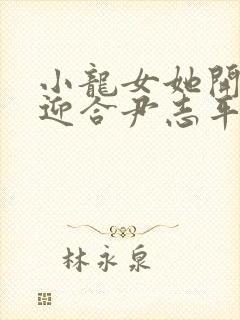 小龍女她開
迎合尹志平
林永泉